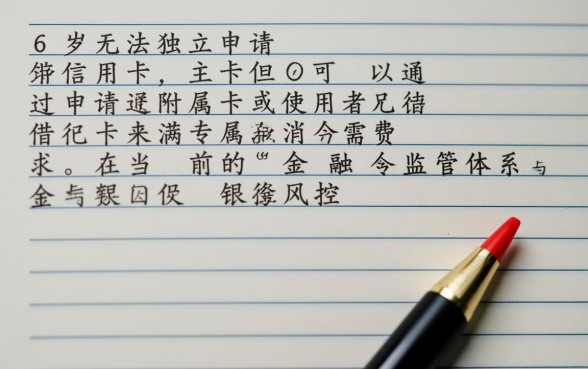 6 岁无法独立申请
信用卡，主卡但可 以通
过申请附属卡或使用者兄
借卡来满专属消今需费
求。在当 前的“金 融 令监管体系与
金与 银风控